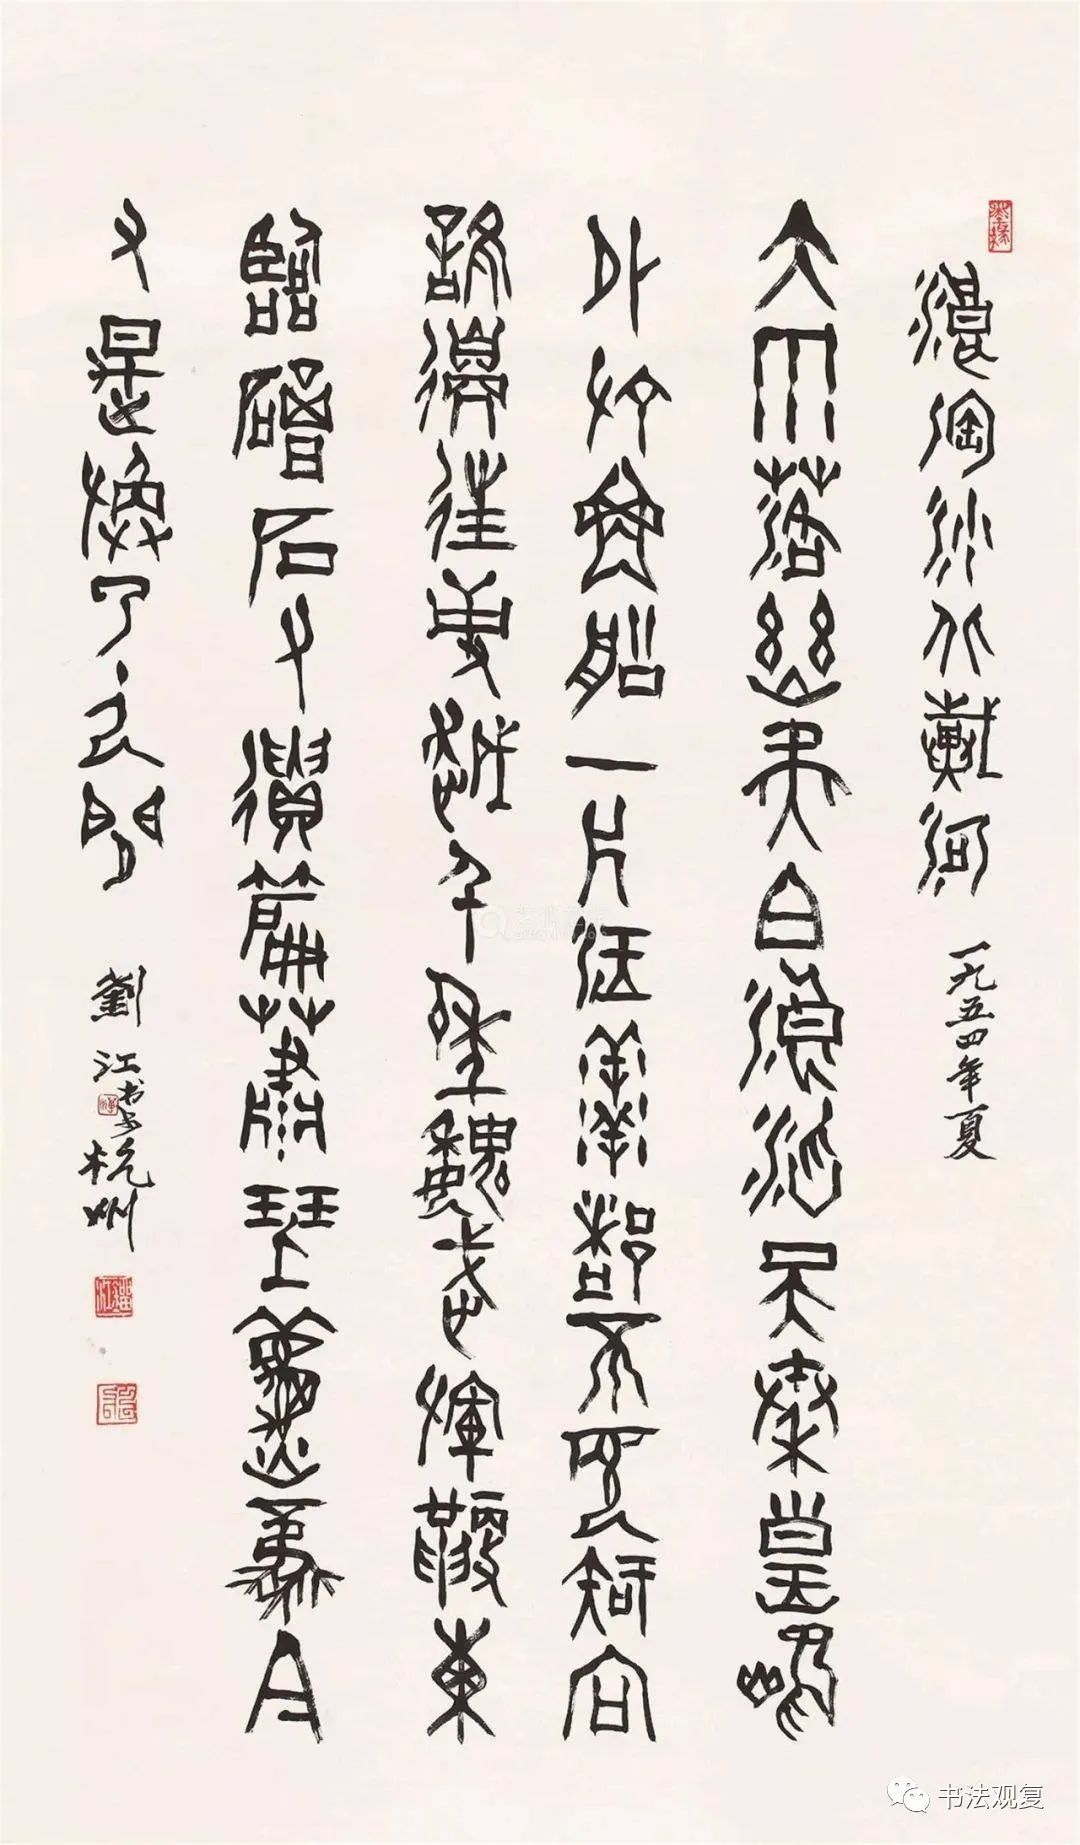 浪淘沙北戴河 一九五四年夏
大雨落幽燕白浪滔天秦皇島
外打魚船一片汪洋都不見知向
誰邊往事越千年魏武揮鞭東
臨碣石有遺篇蕭瑟秋風今
又是換了人間 劉江書於杭州
书法观复